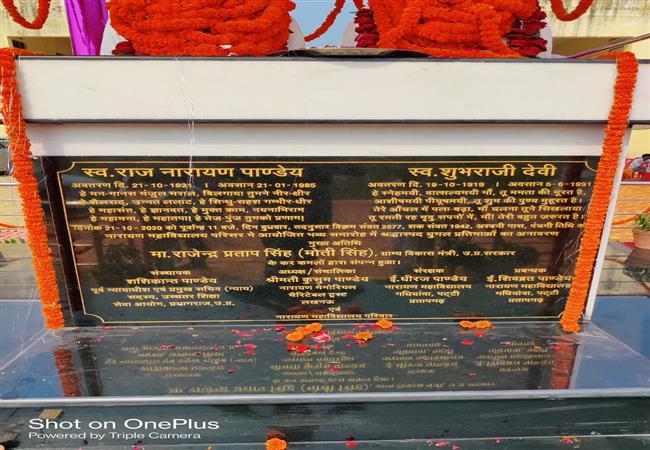 स्व. राज नारायण पाण्डेय
अवतरण दि. 21-10-1921 । अवसान 21-01-1985
हे मन-मानस मंजुल मराल, बिलगाया तुमने नीर-क्षीर
हे शैलसद्, उन्नत ललाट, हे सिन्धु-सहश गम्भीर-धीर
हे महासंत, हे ज्ञानव्रत, हे मुक्त काम, नयनाभिराम
हे महामना, हे महातपा! हे तेज-पुंज तुमको प्रणाम!
स्व. शुभराजी देवी
अवतरण दि. 19-10-1919 । अवसान 5-6-1991
हे स्नेहमयी, वात्सल्यमयी माँ, तू ममता की मूरत है,
आशीषमयी पीयूषमयी, तू शुभ की पुण्य मुहूरत है,
तेरे आँचल में पला-बढ़ा, माँ चलना तूने सिखलाया,
तू रमती रह मृदु रूपों में, माँ! तेरी बहुत जरूरत है।
दिनांक 21-10-2020 को पूर्वान्ह 11 बजे, दिन बुधवार, तदनुसार विक्रम संवत 2077, शक संवत 1942, अश्वनी मास, पंचमी तिथि को
नारायण महाविद्यालय परिसर में आयोजित भव्य समारोह में श्रद्धास्पद युगल प्रतिमाओं का अनावरण
मुख्य अतिथि
मा. राजेन्द्र प्रताप सिंह (मोती सिंह), ग्राम्य विकास मंत्री, उ.प्र.सरकार
के कर कमलों द्वारा संपन्न हुआ।
संस्थापक
शशिकान्त पाण्डेय
पूर्व न्यायाधीश एवं प्रमुख सचिव (न्याय)
सदस्य, उच्चतर शिक्षा
सेवा आयोग, प्रयागराज,उ.प्र.
अध्यक्षा/संचालिका
श्रीमती कुसुम पाण्डेय
नारायण मेमोरियल
चैरिटेबल ट्रस्ट
लखनऊ
संरक्षक
ई.धीरज पाण्डेय
नारायण महाविद्यालय
गधियांवा, पट्टी
प्रतापगढ़
प्रबन्धक
ई. शिवब्रत पाण्डेय
नारायण महाविद्यालय
गधियांवा, पट्टी
प्रतापगढ़
एवं
नारायण महाविद्यालय परिवार
Shot on OnePlus
Powered by Triple Camera